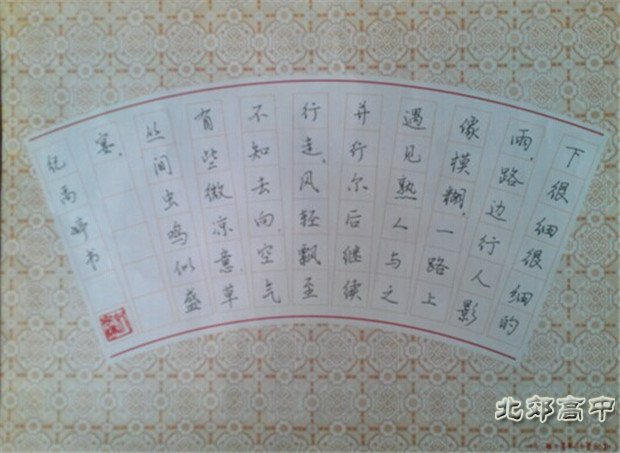 下很细很细的
雨,路边行人影
像模糊,一路上
遇见熟人与之
并行尔后继续
行走,风轻飘至
不知去向,空气
有些微凉意,草
丛间虫鸣似盛
宴,
纪禹婷书
北郊高中